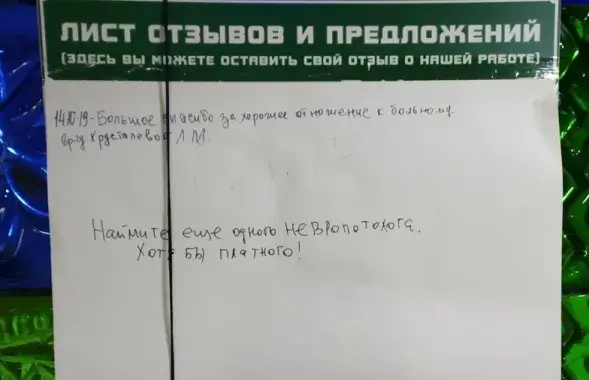 ЛИСТ ОТЗЫВОВ И ПРЕДЛОЖЕНИЙ
(ЗДЕСЬ ВЫ МОЖЕТЕ ОСТАВИТЬ СВОЙ ОТЗЫВ О НАШЕЙ РАБОТЕ)
14.10.19-Большое спасибо за хорошее отношение к больному.
врачу Хрусталевой Л М.
Наймите еще одного невропотохога.
Хотя бы платного!